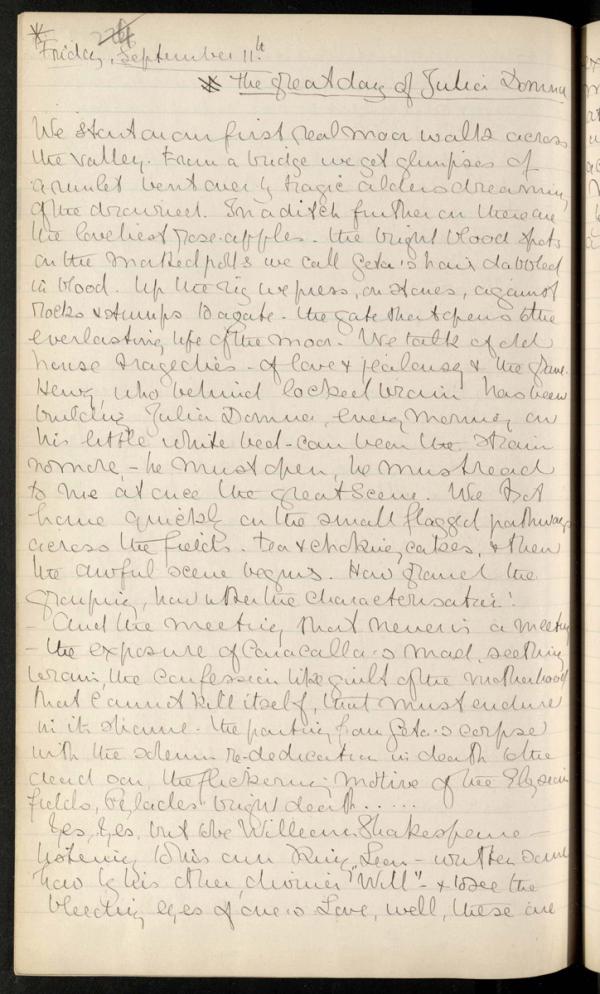 Friday, September 11th.
* The great day of Julia Domna
We start on our first real moor walk across
the valley. From a bridge we get glimpses of
a runlet bent over by tragic alders dreaming
of the drowned. In a ditch further on there are
the loveliest rose-apples. the bright blood spots
on the we call Geta's hair dabbled
in blood. Up the rig we press, on stones, against
rocks & stumps to a gate. the gate that opens to the
everlasting life of the moor. We talk of old
house tragedies - of love & jealousy & the grave.
Henry, who behind locked brain has been
building Julia Domna, every morning on
his little white bed - can bear the strain
no more, - he must open, he must read
to me at once the great Scene. We trot
home quickly on the small flagged pathways
across the fields. tea & choking cakes, & then
the awful scene begins. How grand the
grouping, how utter the characterisation!
- And the meeting that never is a meeting
- the exposure of Caracalla's mad, seething
brain, the confession like guilt of the motherhood
that cannot kill itself, that must endure
in its shame. the parting from Geta's corpse
with the solemn re-dedication in death to the
dead son, the flickering motive of the Elysian
fields, Pylades' bright death . . . . .
Yes, yes, but to be William Shakespeare -
listening to his own King Lear - written some
how by his other, diviner "Will" - & to see the
bleeding eyes of one's Love, well, these are